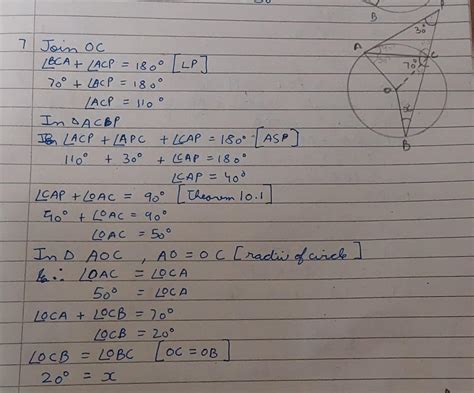 7 Join OC
∠BCA + ∠ACP = 180° [LP]
70° + ∠ACP = 180°
∠ACP = 110°
In △ACP
∠ACP + ∠APC + ∠CAP = 180° [ASP]
110° + 30° + ∠CAP = 180°
∠CAP = 40°
∠CAP + ∠OAC = 90° [Theorem 10.1]
40° + ∠OAC = 90°
∠OAC = 50°
In △ AOC , AO = OC [radii of circle]
∴ ∠OAC = ∠OCA
50° = ∠OCA
∠OCA + ∠OCB = 70°
∠OCB = 20°
∠OCB = ∠OBC [OC = OB]
20° = x
B
P
30°
A
C
70°
O
x
B